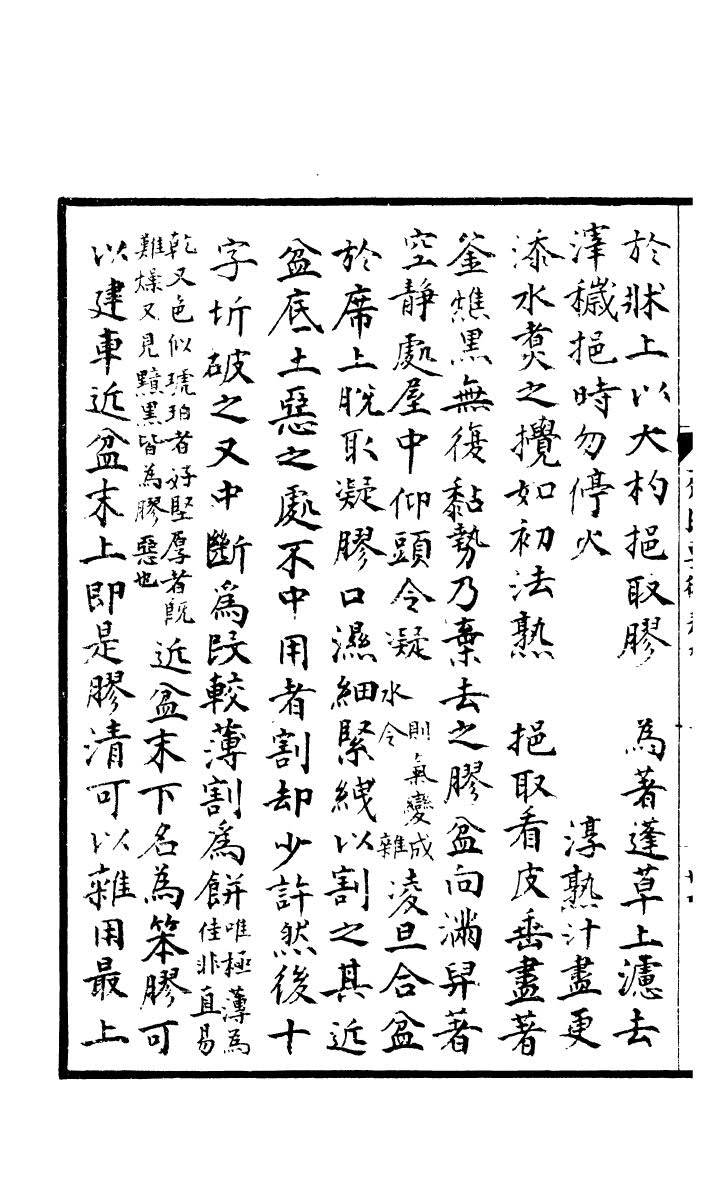 於牀上以大杓挹取膠　為著蓬草上濾去
滓穢挹時勿停火　淳熟汁盡更
添水煑之攪如初法熟　挹取看皮垂盡著
釜燋黒無復黏勢乃棄去之膠盆向滿舁著
空静處屋中仰頭令凝 則氣變成 水令 雜 凌旦合盆
於席上脱取凝膠口濕細緊綫以割之其近
盆底土惡之處不中用者割却少許然後十
字圻破之又中斷為段較薄割為餅 唯極薄為 佳非直易
乾又色似琥珀者好堅厚者既
難燥又見黯黒皆為膠惡也
近盆末下名為笨膠可
以建車近盆末上即是膠清可以雜用最上